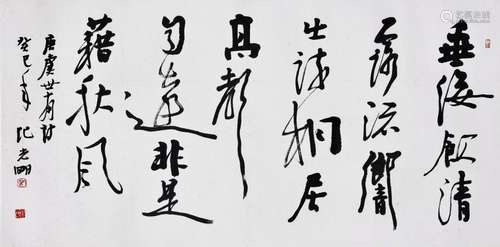 垂緌飲清
露流響
出疏桐居
高聲
自遠非是
藉秋风
唐虞世南诗
癸巳年 纪光明